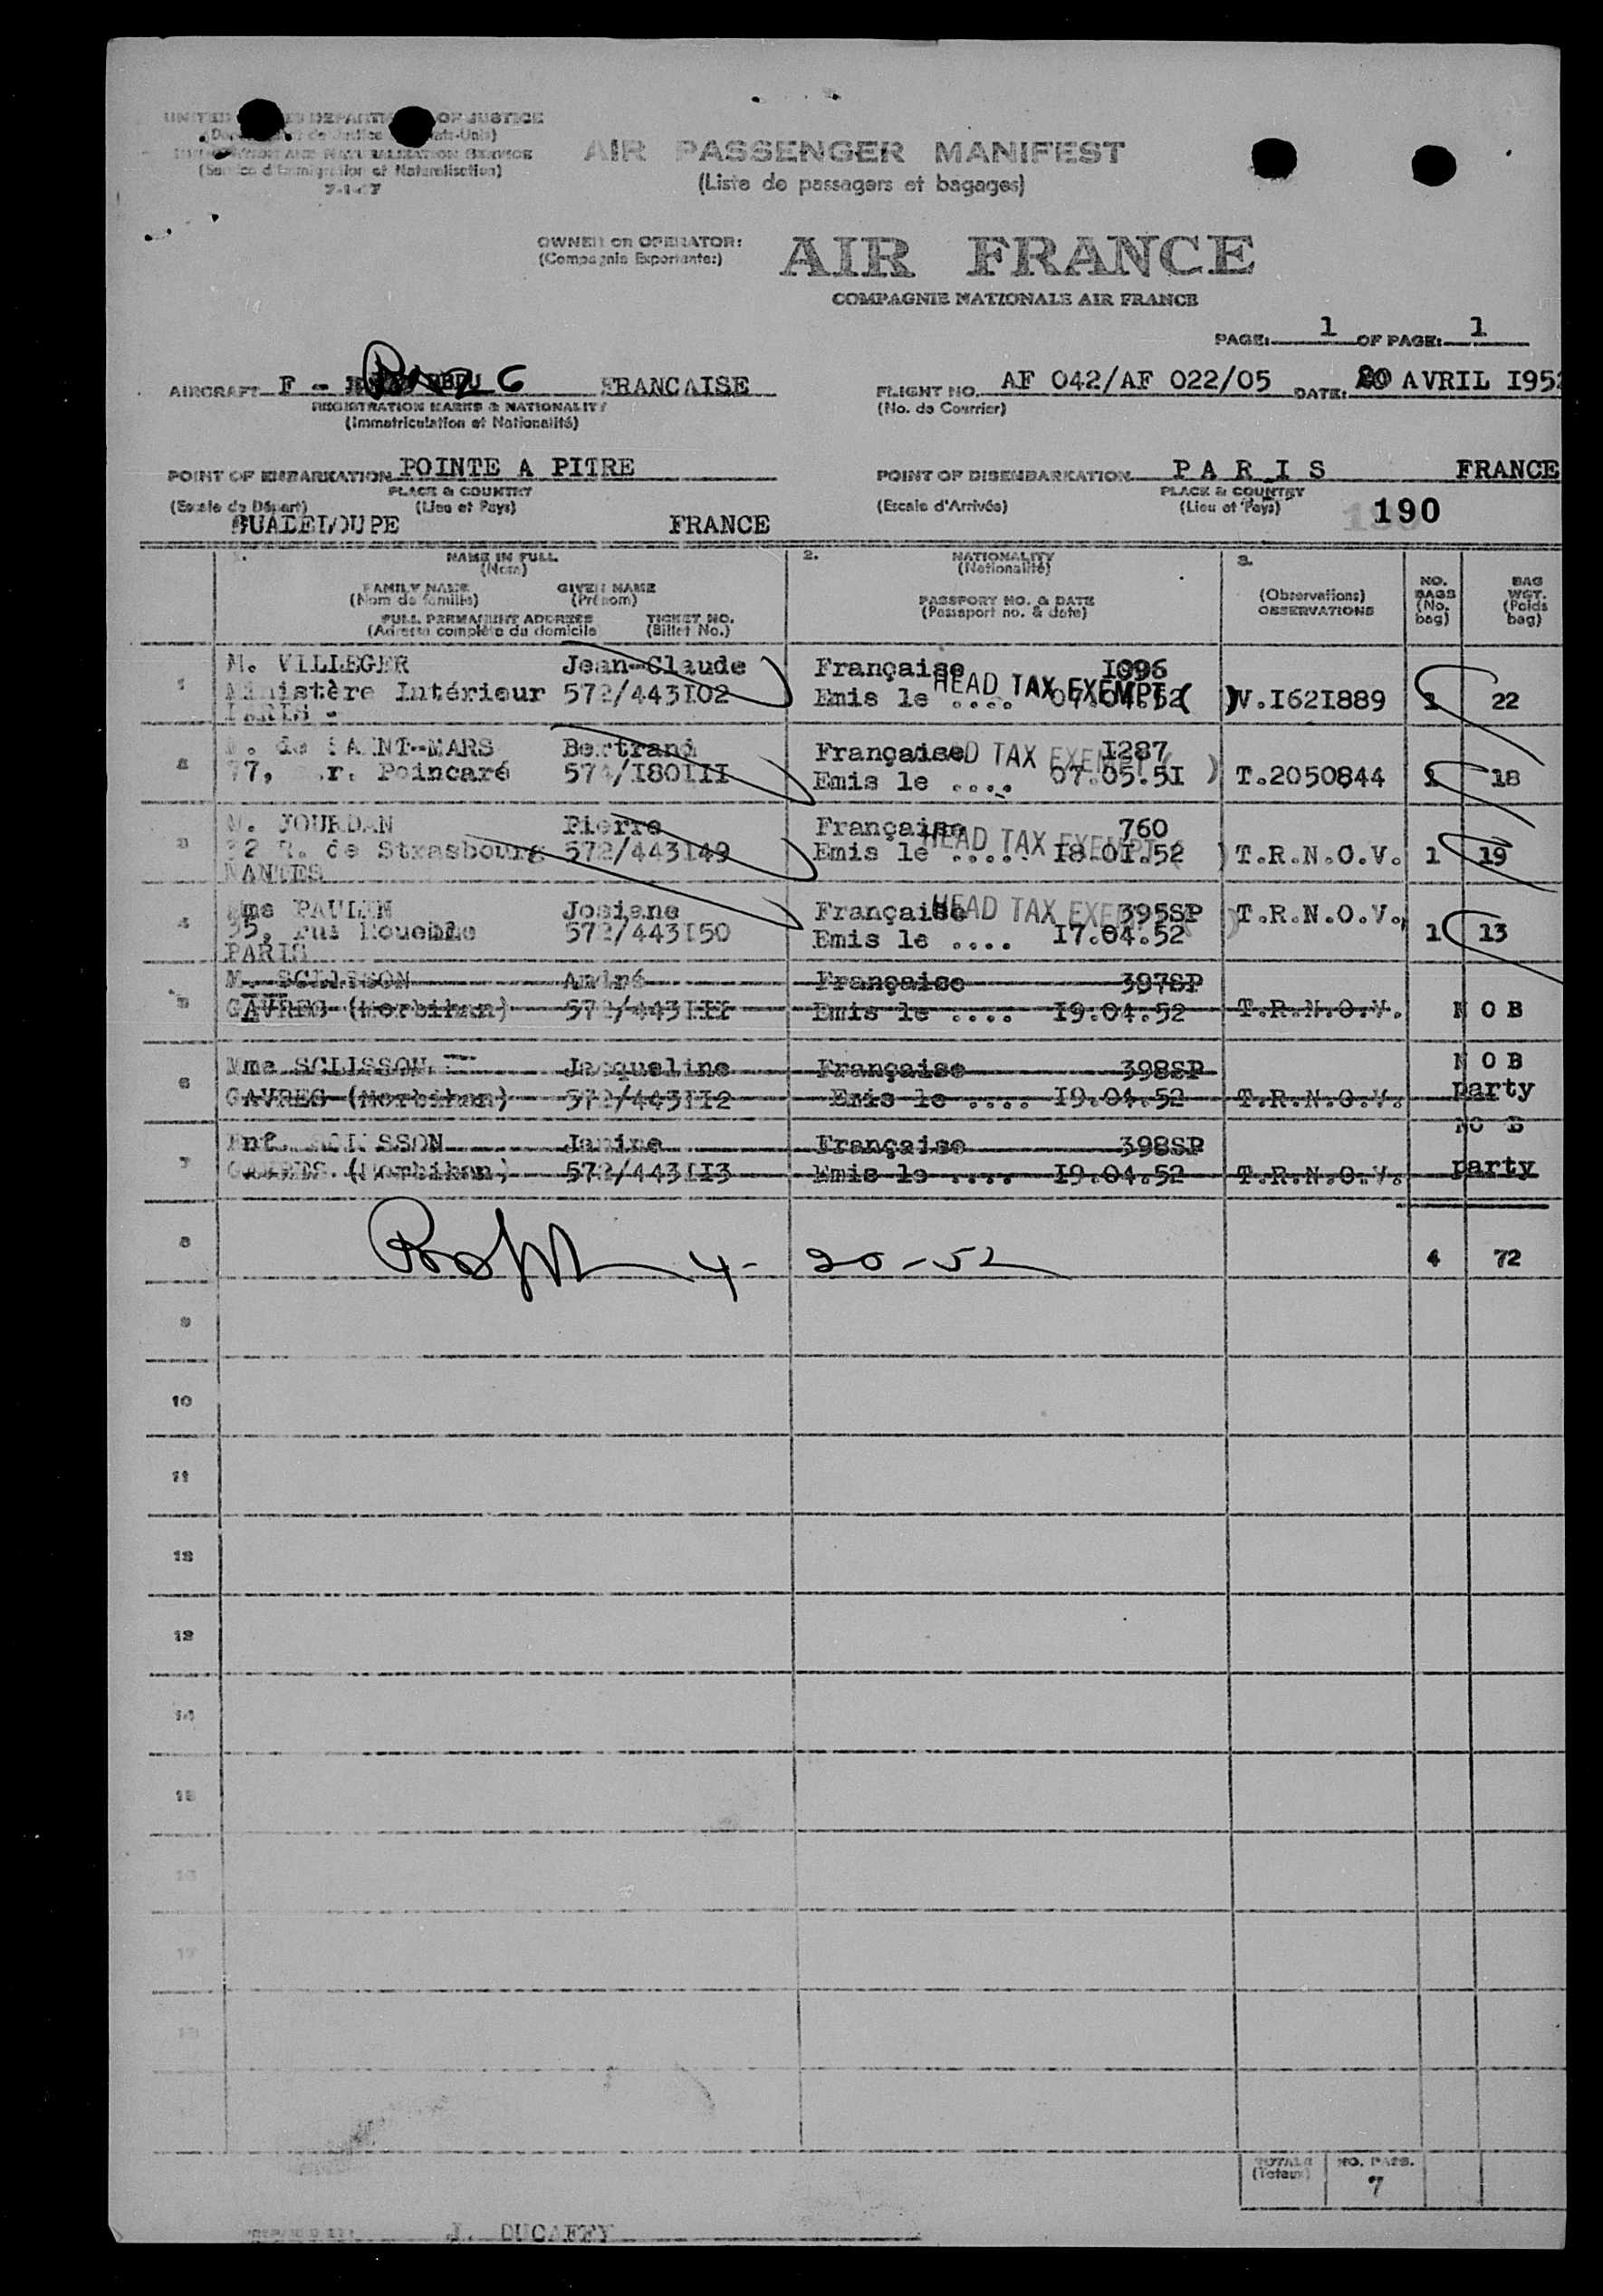 UNITED STATES DEPARTMENT OF JUSTICE
IMMIGRATION AND NATURALIZATION SERVICE
(Service d'Immigration et Naturalisation)
AIR PASSENGER MANIFEST
(Liste de passagers et bagages)
OWNER OR OPERATOR:
(Compagnie Exportante:)
AIR FRANCE
COMPAGNIE NATIONALE AIR FRANCE
PAGE: 1 OF PAGE: 1
AIRCRAFT F - FRANCAISE
REGISTRATION MARKS & NATIONALITY
(Immatriculation et Nationalité)
FLIGHT NO. AF 042/AF 022/05 DATE: 20 AVRIL I952
(No. de Courrier)
POINT OF EMBARKATION POINTE A PITRE
PLACE & COUNTRY
(Escale de Départ) (Lieu et Pays)
GUADELOUPE FRANCE
POINT OF DISEMBARKATION P A R I S FRANCE
PLACE & COUNTRY
(Escale d'Arrivée) (Lieu et Pays)
190
1. NAME IN FULL
(Nom)
FAMILY NAME GIVEN NAME
(Nom de famille) (Prénom)
FULL PERMANENT ADDRESS TICKET NO.
(Adresse complète du domicile (Billet No.)
2. NATIONALITY
(Nationalité)
PASSPORT NO. & DATE
(Passeport no. & date)
3.
(Observations)
OBSERVATIONS
NO. BAGS (No. bag)
BAG WGT. (Poids bag)
1 M. VILLEGER Jean-Claude Française I096
Ministère Intérieur 572/443I02 Emis le .... 07.04.52 V.I62I889 1 22
PARIS -
HEAD TAX EXEMPT ( )
2 M. de SAINT-MARS Bertrand Française I287
77, r. Poincaré 574/I80III Emis le .... 07.05.5I T.2050844 1 18
HEAD TAX EXEMPT ( )
3 M. JOURDAN Pierre Française 760
22 R. de Strasbourg 572/443I49 Emis le ..... I8.0I.52 T.R.N.O.V. 1 19
NANTES
HEAD TAX EXEMPT ( )
4 Mme PAULIN Josiane Française 395SP T.R.N.O.V.
35, rue 572/443I50 Emis le .... I7.04.52 1 13
PARIS
HEAD TAX EXEMPT ( )
5 M. SCLISSON André Française 397SP
GAVRES (Morbihan) 572/443III Emis le .... I9.04.52 T.R.N.O.V. N O B
6 Mme SCLISSON Jacqueline Française 398SP N O B
GAVRES (Morbihan) 572/443II2 Emis le .... I9.04.52 T.R.N.O.V. party
7 Enf. SCLISSON Janine Française 398SP NO B
GAVRES (Morbihan) 572/443II3 Emis le .... I9.04.52 T.R.N.O.V. party
8 4-20-52 4 72
9
10
11
12
13
14
15
16
17
TOTALS NO. PASS.
(Totaux) 7
J. DUCAFFY